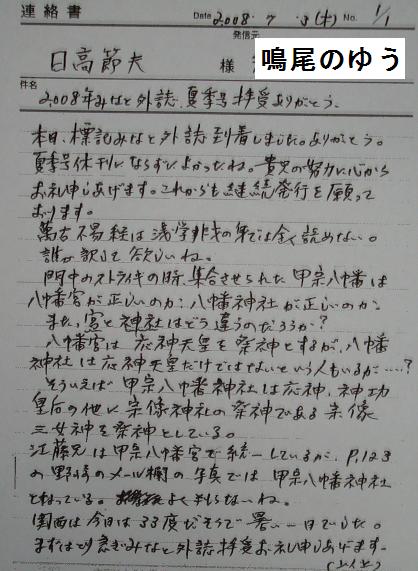 連絡書
Date 2008・7・3(木) No. 1/1
発信元
日高節夫 様
鳴尾のゆう
件名
2008年みなと外誌、夏季号拝受ありがとう。
本日、標記みなと外誌到着しました。ありがとう。
夏季号休刊にならずによかったね。貴兄の努力に心から
お礼申しあげます。これからも継続発行を願って
おります。
萬古不易経は浅学非才の身では全く読めない。
誰か訳して欲しいね。
門中のストライキの時、集合させられた甲宗八幡は
八幡宮が正しいのか?八幡神社が正しいのか?
また、宮と神社はどう違うのだろうか?
八幡宮は応神天皇を祭神とするが、八幡
神社は応神天皇だけではないという人もいるが……?
そういえば甲宗八幡神社は応神、神功
皇后の他に宗像神社の祭神である宗像
三女神を祭神としている。
江藤兄は甲宗八幡宮で統一しているが、P.123
の野崎のメール欄の写真では甲宗八幡神社
となっている。よく判らないね。
関西は今日は33度だそうで暑い一日でした。
まずはとり急ぎみなと外誌拝受お礼申しあげます。